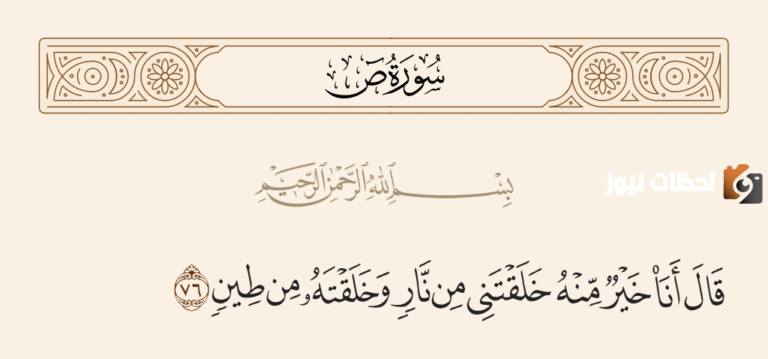 سُورَةُ صٓ
بِسْمِ ٱللَّهِ ٱلرَّحْمَٰنِ ٱلرَّحِيمِ
لحظات نيوز
قَالَ أَنَا۠ خَيْرٌ مِّنْهُ خَلَقْتَنِى مِن نَّارٍ وَخَلَقْتَهُۥ مِن طِينٍ ٧٦